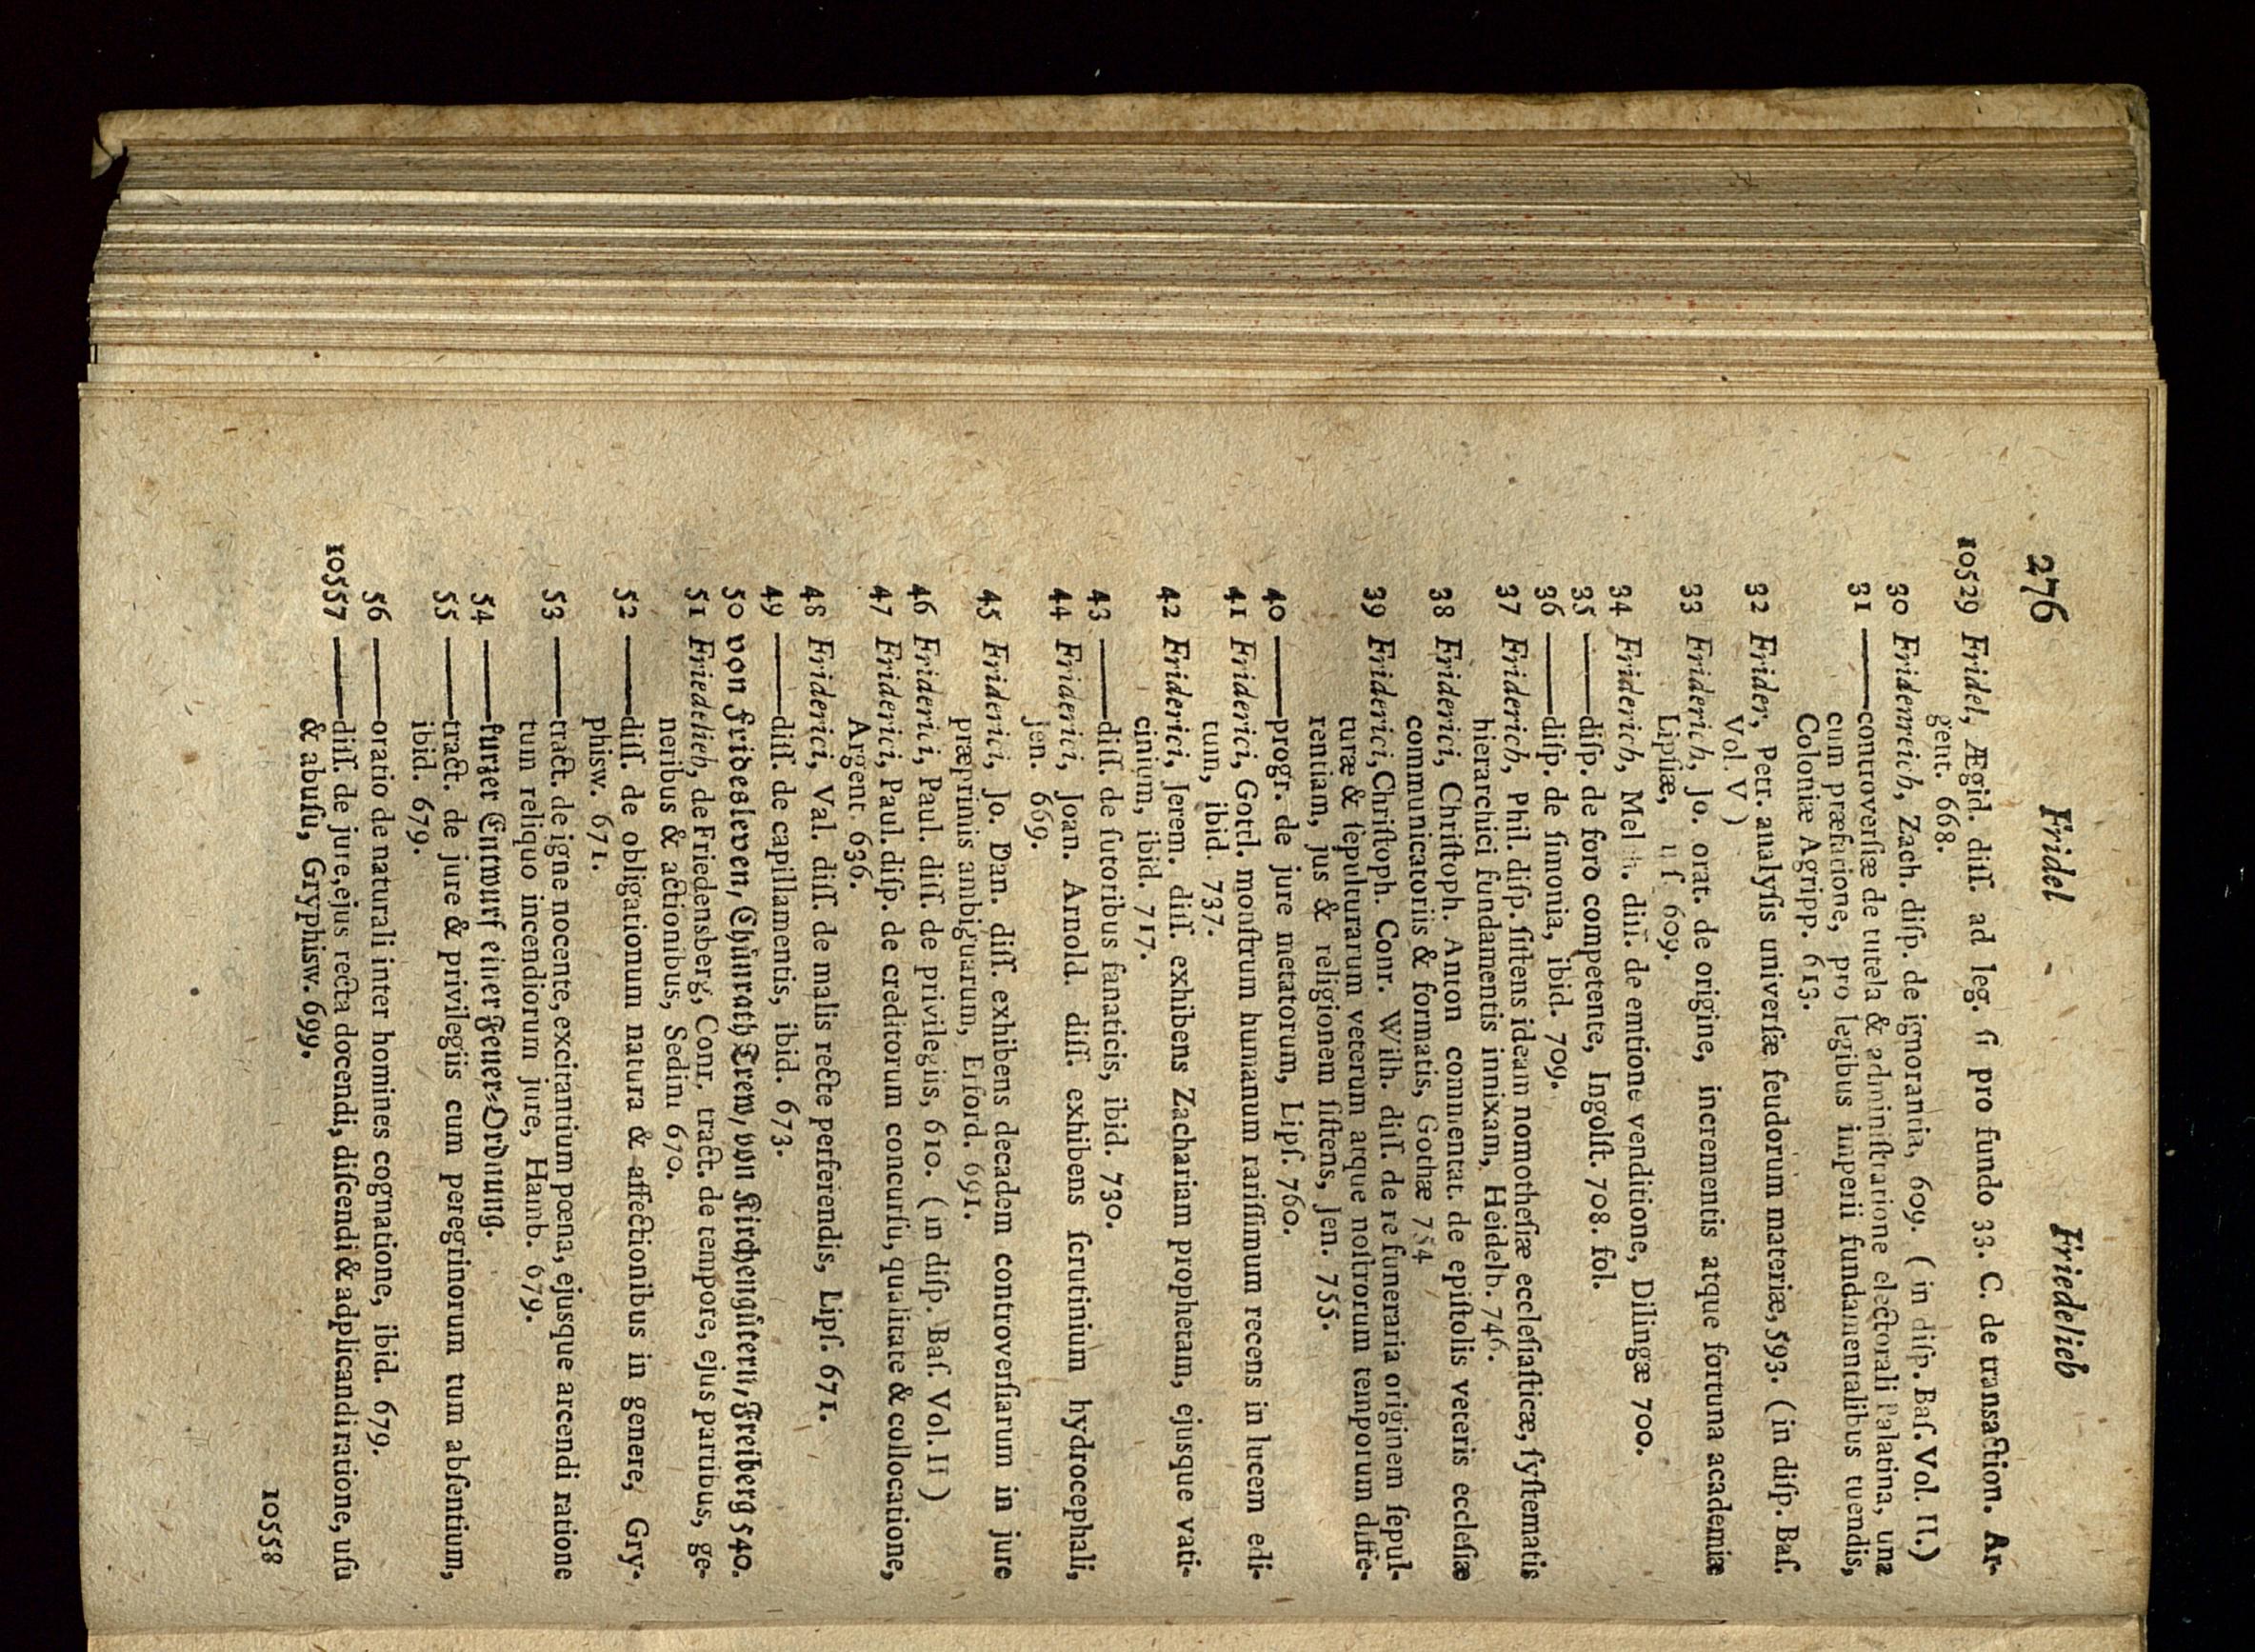 276 Fridel - Friedelieb
10529 Fridel, Ægid. diſſ. ad leg. ſi pro fundo 33. C. de transaction. Ar-
gent. 668.
30 Fridenreich, Zach. diſp. de ignorantia, 609. ( in diſp. Baſ. Vol. II.)
31 ——controverſiæ de tutela & adminiſtratione electorali Palatina, una
cum præfatione, pro legibus imperii fundamentalibus tuendis,
Coloniæ Agripp. 613.
32 Frider, Petr. analyſis univerſæ feudorum materiæ, 593. ( in diſp. Baſ.
Vol. V )
33 Friderich, Jo. orat. de origine, incrementis atque fortuna academiæ
Lipſiæ, 609.
34 Friderich, diſſ. de emtione venditione, Dilingæ 700.
35 ——diſp. de foro competente, Ingolſt. 708. fol.
36 ——diſp. de ſimonia, ibid. 709.
37 Friderich, Phil. diſp. ſiſtens ideam nomotheſiæ eccleſiaſticæ, ſyſtematis
hierarchici fundamentis innixam, Heidelb. 746.
38 Friderici, Chriſtoph. Anton commentat. de epiſtolis veteris eccleſiæ
communicatoriis & formatis, Gothæ 754
39 Friderici, Chriſtoph. Conr. Wilh. diſſ. de re funeraria originem ſepul-
turæ & ſepulturarum veterum atque noſtrorum temporum diffe-
rentiam, jus & religionem ſiſtens, Jen. 755.
40 ——progr. de jure metatorum, Lipſ. 760.
41 Friderici, Gottl. monſtrum humanum rariſſimum recens in lucem edi-
tum, ibid. 737.
42 Friderici, Jerem. diſſ. exhibens Zachariam prophetam, ejusque vati-
cinium, ibid. 717.
43 ——diſſ. de ſutoribus fanaticis, ibid. 730.
44 Friderici, Joan. Arnold. diſſ. exhibens ſcrutinium hydrocephali,
Jen. 669.
45 Friderici, Jo. Dan. diſſ. exhibens decadem controverſiarum in jure
præprimis ambiguarum, Erford. 691.
46 Friderici, Paul. diſſ. de privilegiis, 610. ( in diſp. Baſ. Vol. II )
47 Friderici, Paul. diſp. de creditorum concurſu, qualitate & collocatione,
Argent. 636.
48 Friderici, Val. diſſ. de malis recte perferendis, Lipſ. 671.
49 ——diſſ. de capillamentis, ibid. 673.
50 von Fridesleven, Chunrath Trew, von Kirchengütern, Freiberg 540.
51 Friedelieb, de Friedensberg, Conr. tract. de tempore, ejus partibus, ge-
neribus & actionibus, Sedini 670.
52 ——diſſ. de obligationum natura & affectionibus in genere, Gry-
phisw. 671.
53 ——tract. de igne nocente, excitantium pœna, ejusque arcendi ratione
tum reliquo incendiorum jure, Hamb. 679.
54 ——kurzer Entwurf einer Feuer-Ordnung.
55 ——tract. de jure & privilegiis cum peregrinorum tum abſentium,
ibid. 679.
56 ——oratio de naturali inter homines cognatione, ibid. 679.
10557 ——diſſ. de jure, ejus recta docendi, diſcendi & adplicandi ratione, uſu
& abuſu, Gryphisw. 699.
10558